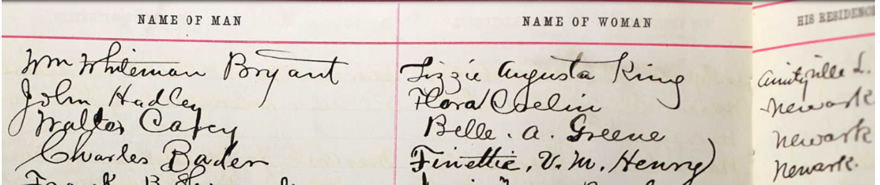 NAME OF MAN NAME OF WOMAN HIS RESIDENCE
Wm Whiteman Bryant Lizzie Augusta King Amityville L.
John Hadley Flora Newark
Walter Carey Belle. A. Greene Newark
Charles Bader Finettie, V. M. Henry) Newark.
Frank B.